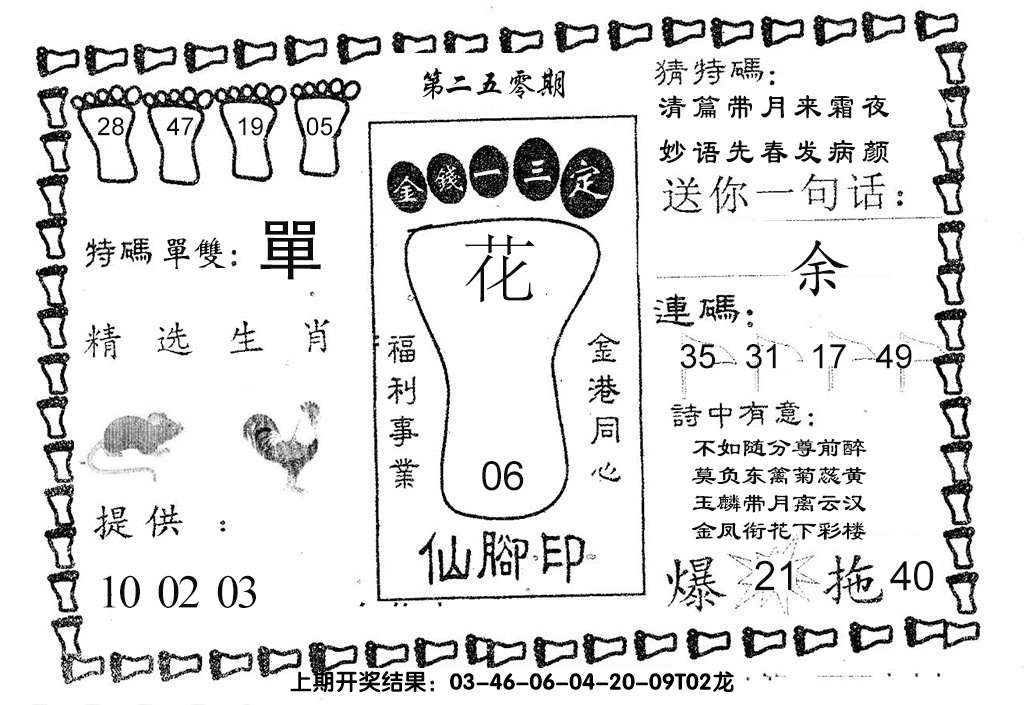 第二五零期
28 47 19 05
特碼單雙：單
精选生肖
提供：
10 02 03
金錢一三定
花
福利事業
金港同心
06
仙腳印
猜特碼：
清篇带月来霜夜
妙语先春发病颜
送你一句话：
余
連碼：
35 31 17 49
詩中有意：
不如随分尊前醉
莫负东篱菊蕊黄
玉麟带月离云汉
金凤衔花下彩楼
爆 21 拖 40
上期开奖结果：03-46-06-04-20-09T02龙